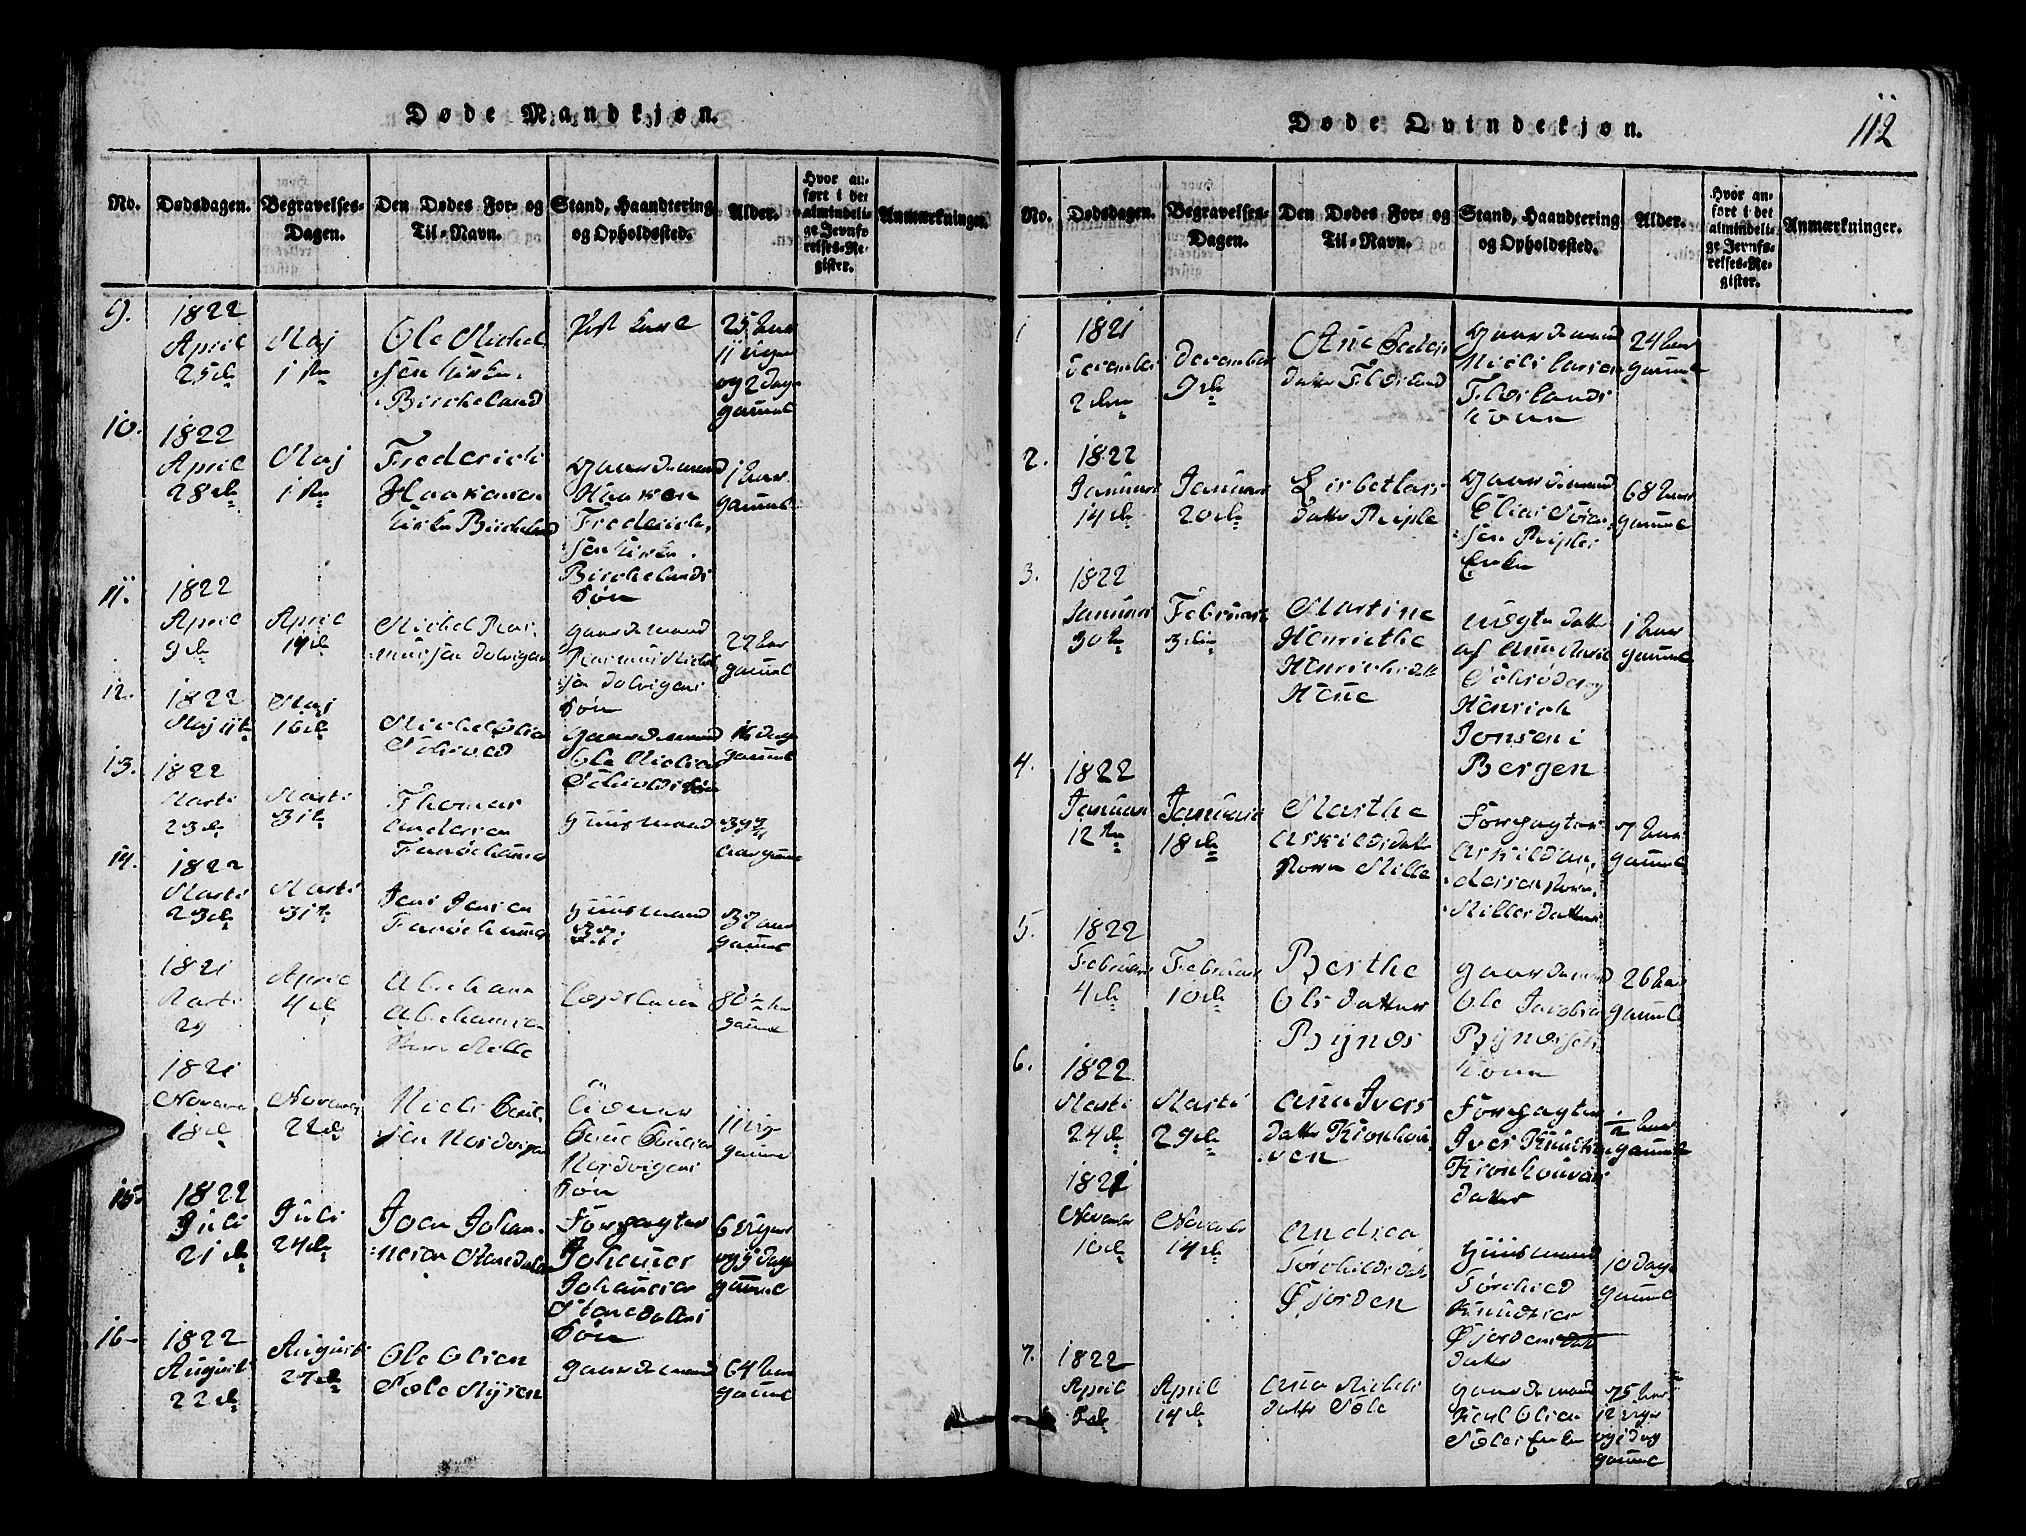 Døde Mandkjøn.
No.
Dødsdagen.
Begravelses-
Dagen.
Den Dødes For- og
Til-Navn.
Stand, Haandtering
og Opholdssted.
Alder.
Hvor an-
ført i det
almindeli-
ge Jevnfø-
relses-Re-
gister.
Anmærkninger.
9.
1822
April
25de
Maj
1ste
Ole Michel
sen Kirke
Birkeland
25 Aar
11 Uger
og 2 Dage
gammel
10.
1822
April
28de
Maj
1ste
Frederich
Haakensen
Kirke Birkeland
Gaardemand
Haaken
Frederich
sen Kirke
Birkelands
Søn
1 Aar
gammel
11.
1822
April
9de
April
14de
Michel Ras
mussen
Gaardemand
Rasmus Michel
sen
Søn
22 Aar
gammel
12.
1822
Maj 11te
Maj
16de
Gaardemand
Ole
16 Dage
gammel
13.
1822
Marti
23de
Marti
31te
Thomas
Andersen
Huusmand
39
Aar gammel
14.
1822
Marti
23de
Marti
31te
Jens Jensen
Huusmand
32 Aar
gammel
1821
Marti
29
April
4de
Abraham
Abrahamsen
Mille
80 Aar
gammel
1821
November
18de
November
22de
Niels
sen Nordvigen
Nordvigens
Søn
11 Uger
gammel
15.
1822
Juli
21de
Juli
24de
Joen Johan
nesen
Forpagter
Johannes
Johannesen
Søn
6 Uger
og 5 Dage
gammel
16
1822
August
22de
August
27de
Ole Olsen
Gaardemand
64 Aar
gammel
Døde Qvindekjøn.
112
No.
Dødsdagen.
Begravelses-
Dagen.
Den Dødes For- og
Til-Navn.
Stand, Haandtering
og Opholdssted.
Alder.
Hvor an-
ført i det
almindeli-
ge Jevnfø-
relses-Re-
gister.
Anmærkninger.
1
1821
December
2den
December
9de
Ane Peders
datter Floreland
Gaardemand
Niels Larsen
Florelands
Kone
24 Aar
gammel
2.
1822
Januar
14de
Januar
20de
Lisbet Lars
datter Reiple
Gaardemand
Elias
sen Reiples
Enke
68 Aar
gammel
3.
1822
Januar
30te
Februar
3die
Martine
Henriethe
Henrichsdatter
Uægte datter
af Anne Marie
Schrøder og
Henrich
Jonsen i
Bergen
1 Aar
gammel
4.
1822
Januar
12te
Januar
18de
Marthe
Askildsdatter
Korn Mille
Forpagter
Askild An
dersen Korn
Milles datter
7 Aar
gammel
5.
1822
Februar
4de
Februar
10de
Berthe
Olsdatter
Byndes
Gaardemand
Ole Jacobsen
Kone
26 Aar
gammel
6.
1822
Marti
24de
Marti
29de
Ana Ivers
datter Kronhou
ven
Forpagter
Iver Knudsen
Kronhouvens
datter
1/2 Aar
gammel
1821
November
10de
November
14de
Andrea
Torkildsdatter
Øjorden
Huusmand
Torkild
Knudsen
Øjordens
datter
10 Dage
gammel
7.
1822
April
April
14de
Ana Nichels
datter Sole
Gaardemand
Karl Olsen
Soles Enke
75 Aar
12 Uger
og 1 dag
gammel